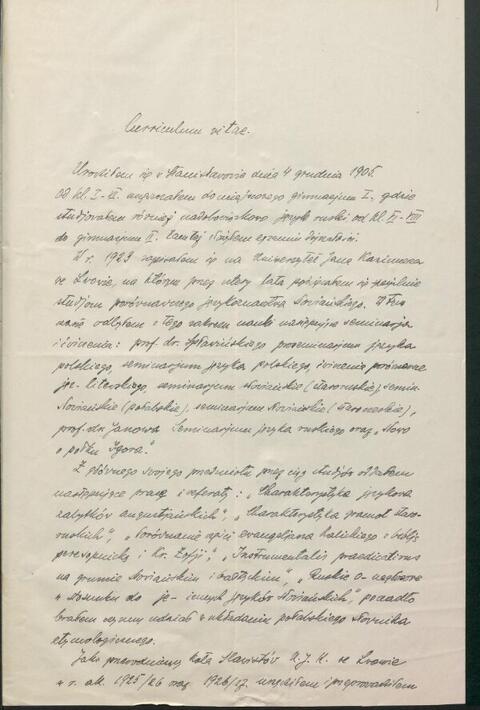 Curriculum vitae.
Urodziłem się w Stanisławowie dnia 4 grudnia 1905
Od kl. I - uczęszczałem do miejscowego gimnazjum I., gdzie
studjowałem również nadobowiązkowo język ruski od kl.
do gimnazjum II. tamtej egzamin dojrzałości.
W r. 1923 zapisałem się na Uniwersytet Jana Kazimierza
we Lwowie, na którym przez cztery lata poświęcałem się pilnie
studjom porównawczego językoznawstwa słowiańskiego. W tym
czasie odbyłem z tego zakresu nauki następujące seminarja
i ćwiczenia: prof. dr. proseminarjum języka
polskiego, seminarjum języka polskiego, ćwiczenia
seminarjum słowiańskie (staroruskie),
słowiańskie (połabskie), seminarjum słowiańskie
prof. dr. Janowa seminarjum języka ruskiego oraz „Słowo
o pułku Igora."
Z głównego swojego przedmiotu przez ciąg studjów oddałem
następujące prace i referaty: „Charakterystyka językowa
zabytków augustjańskich", „Charakterystyka gramot staro-
ruskich", „Porównanie części evangeliarza halickiego z biblją
peresopnicką i Kr. Zofji", „Instrumentalis praedicativus
na gruncie słowiańskim i bałtyckim", „Ruskie o- nagłosowe
w stosunku do je- innych języków słowiańskich", ponadto
brałem czynny udział w układaniu połabskiego słownika
etymologicznego.
Jako przewodniczący Koła Slawistów U. J. K. we Lwowie
w r. ak. 1925/26 oraz 1926/27 urządziłem i przeprowadziłem